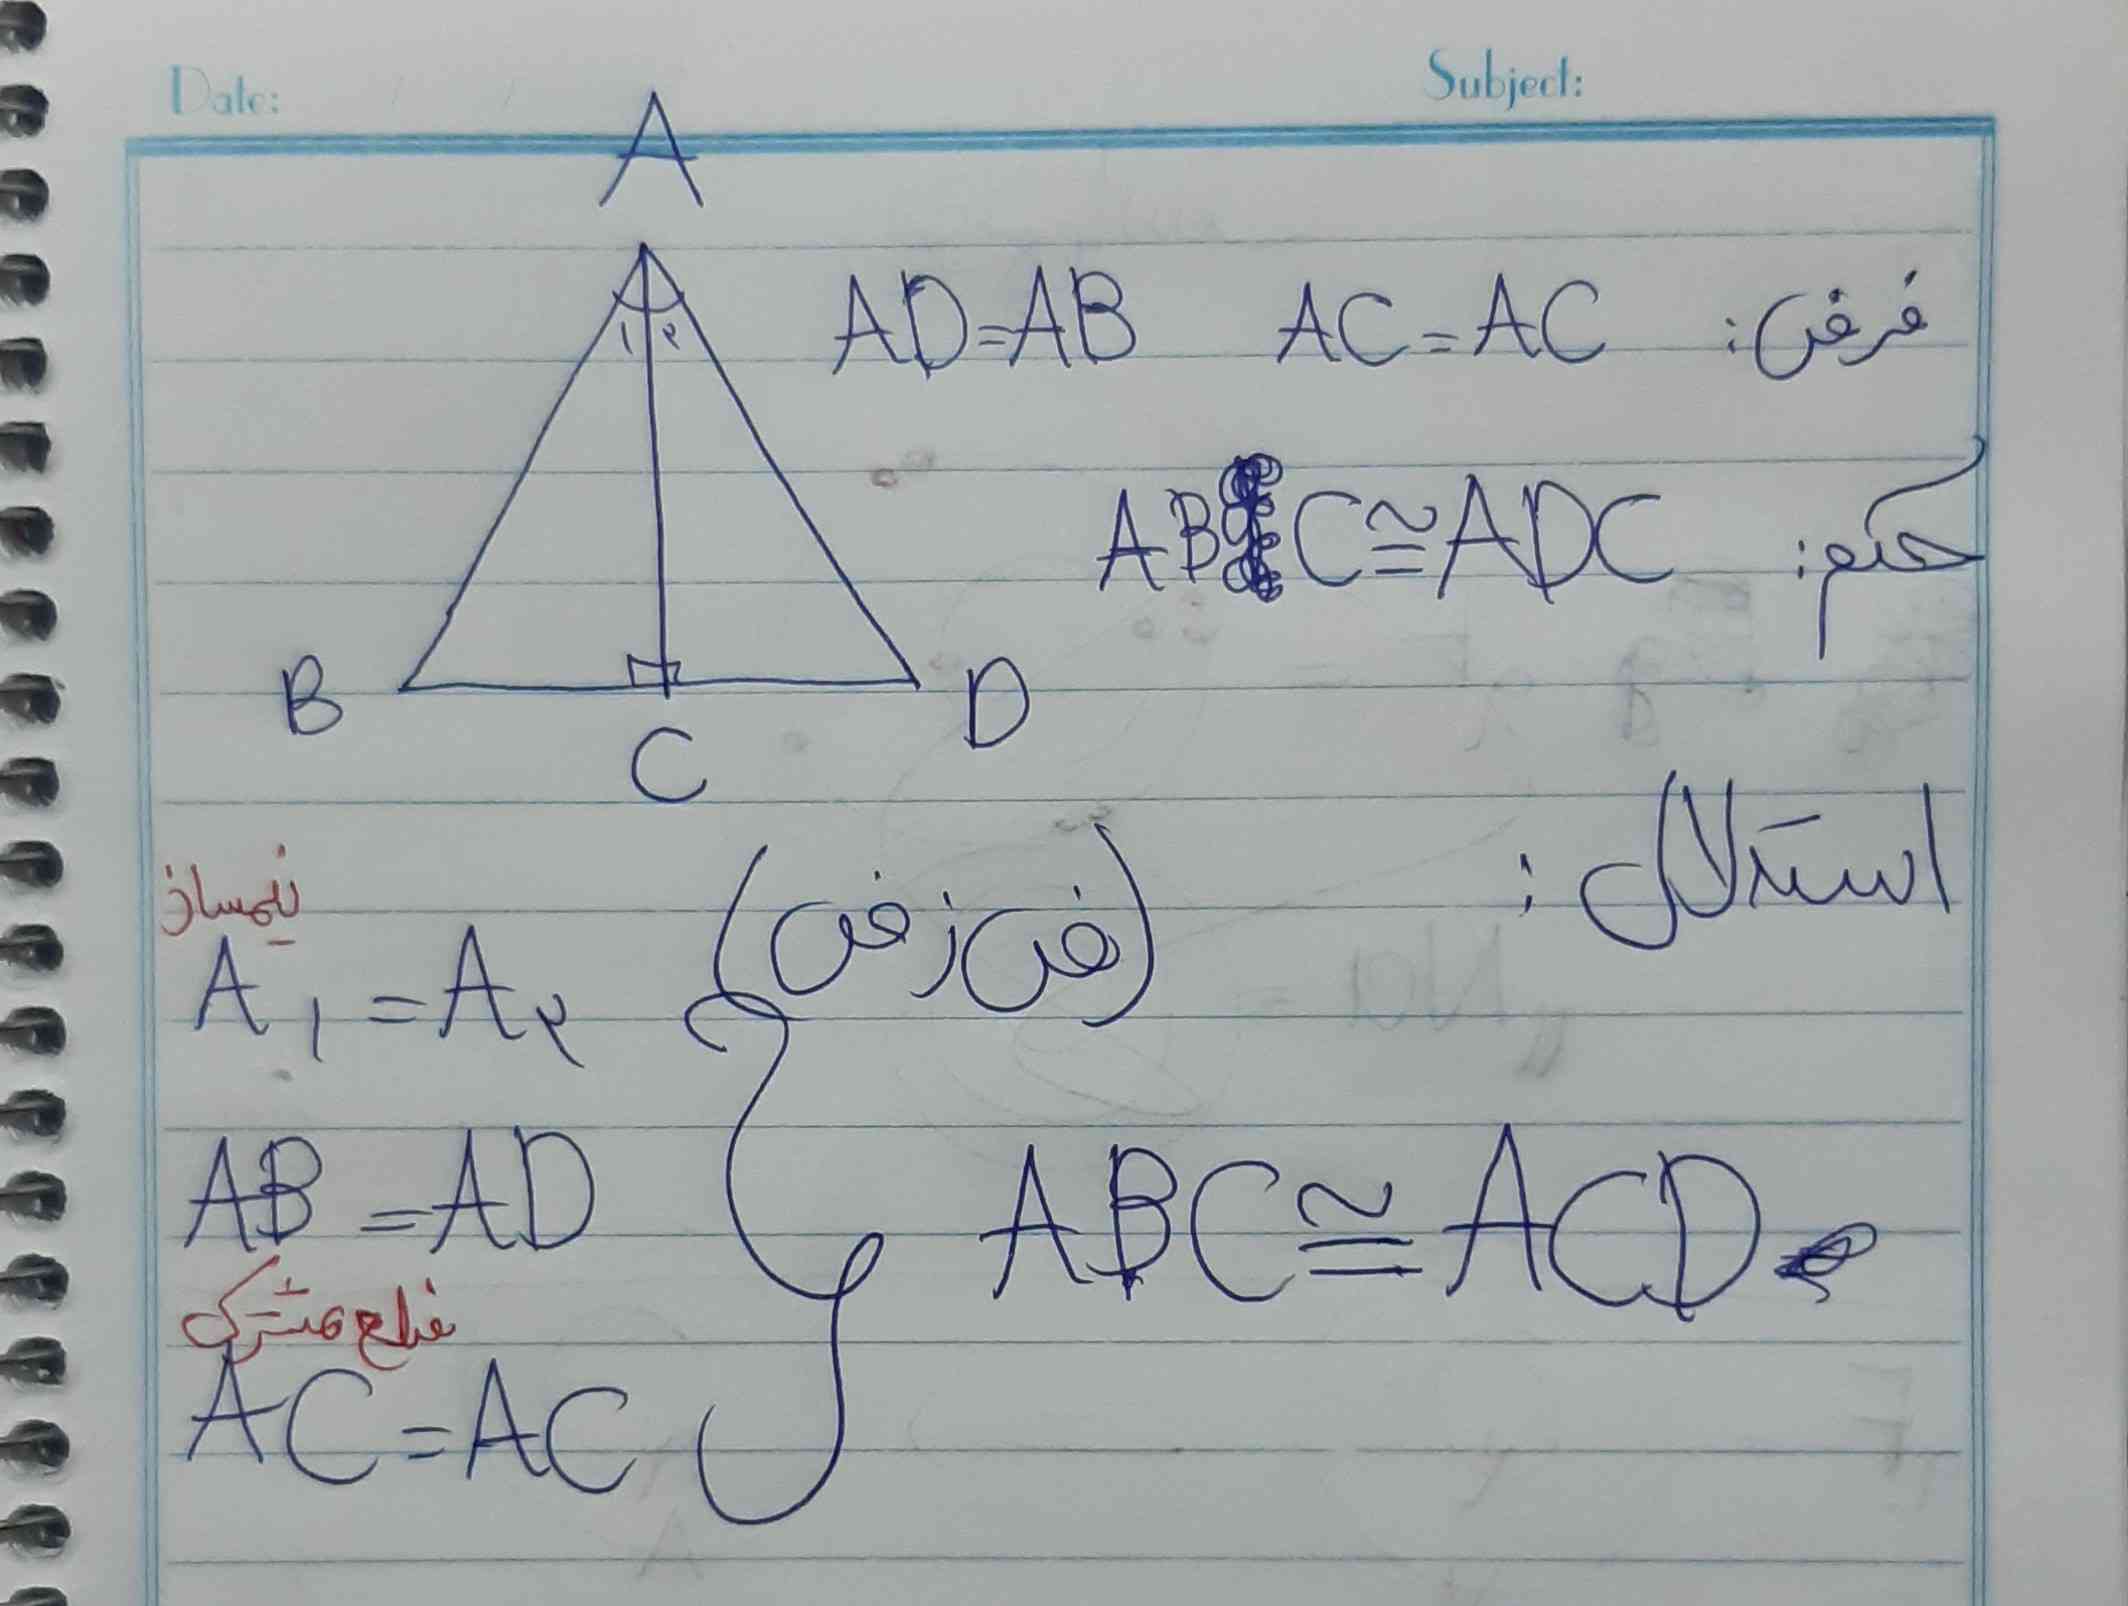 Date: Subject:
A
فرض: AC = AC AD = AB
۱ ۲
حکم: ABC ≅ ADC
B C D
استدلال: (ض ز ض)
نیمساز
A۱ = A۲
AB = AD
ABC ≅ ACD
ضلع مشترک
AC = AC